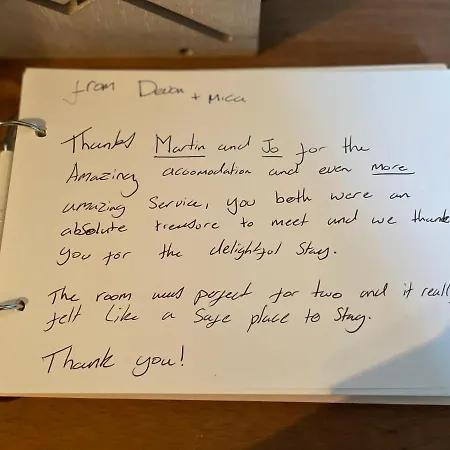 from Devon + Mica
Thanks Martin and Jo for the
Amazing accomodation and even more
amazing Service, you both were an
absolute treasure to meet and we thank
you for the delightful Stay.
The room was perfect for two and it really
felt Like a Safe place to Stay.
Thank you!